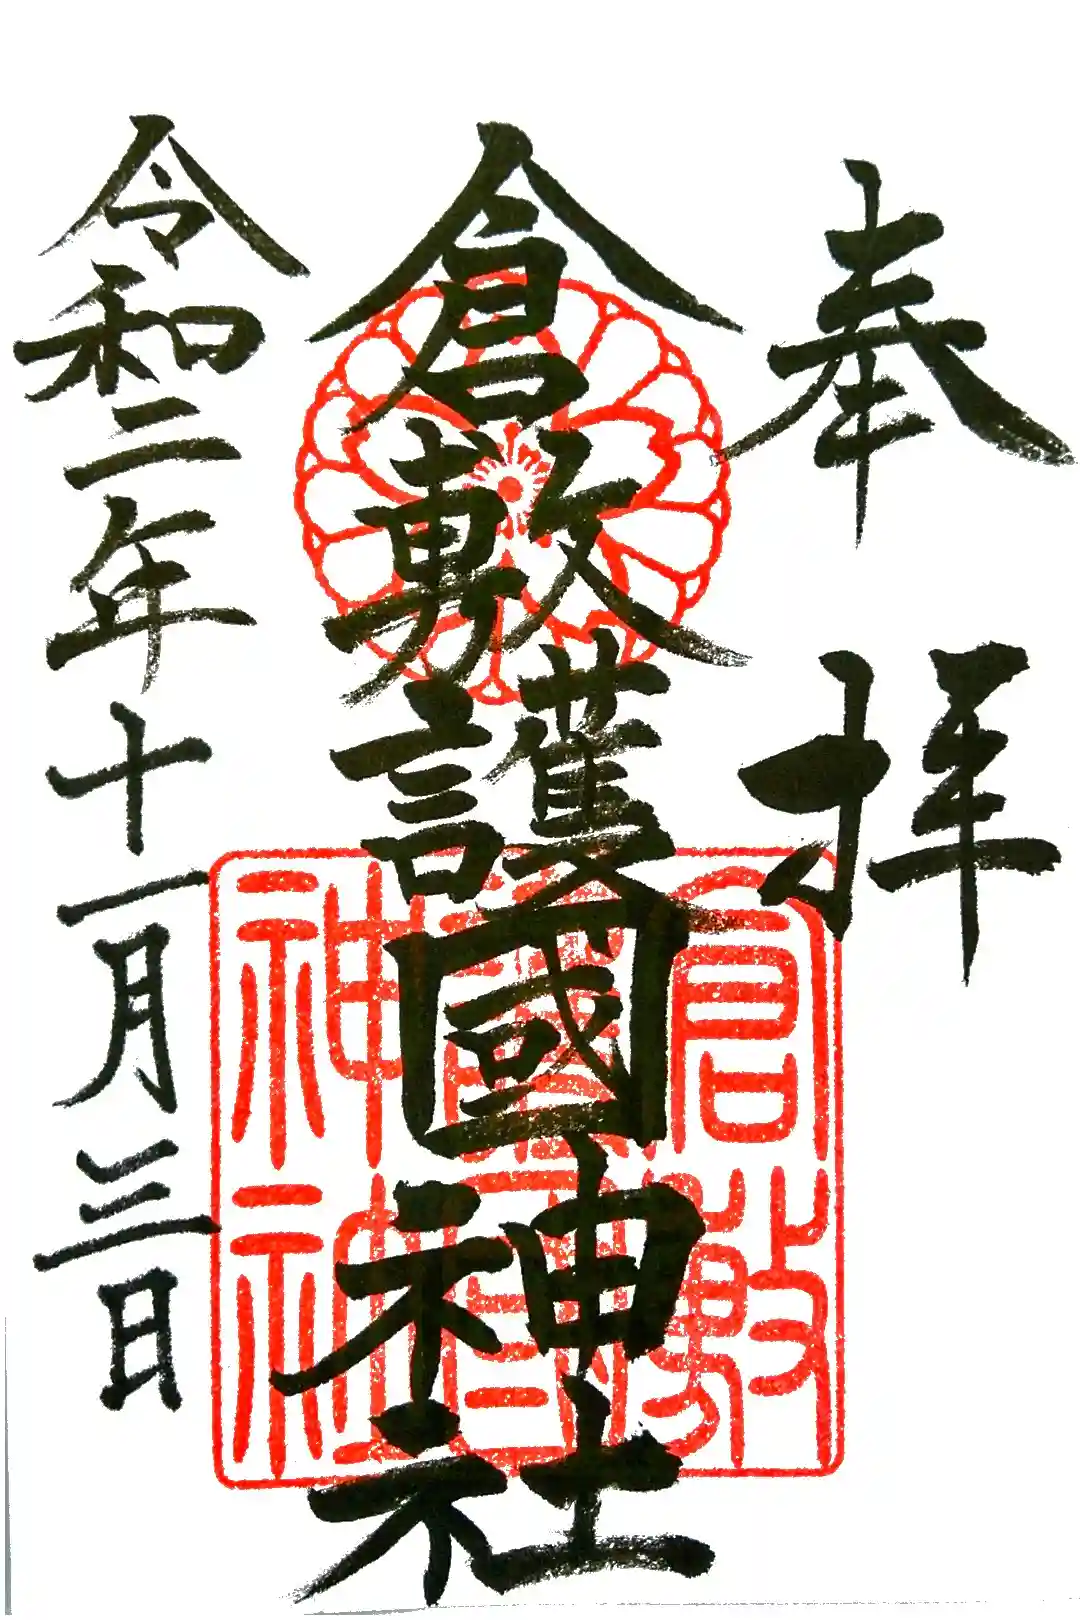 奉拝
倉敷護國神社
倉敷
護國
神社
令和二年十一月三日